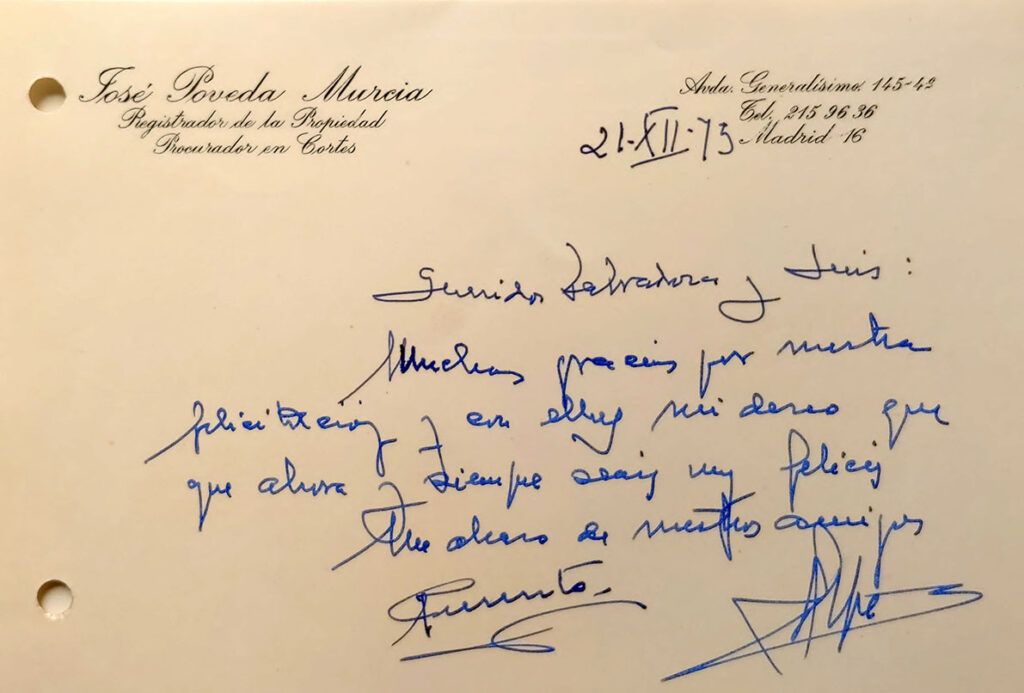 José Poveda Murcia
Registrador de la Propiedad
Procurador en Cortes
Avda. Generalísimo 145-4º
Tel. 215 96 36
Madrid 16
21-XII-73
Queridos Salvadora y Luis:
Muchas gracias por vuestra
felicitación y con ella mi deseo que
que ahora y siempre seais muy felices
Un abrazo de vuestros amigos
Pepe